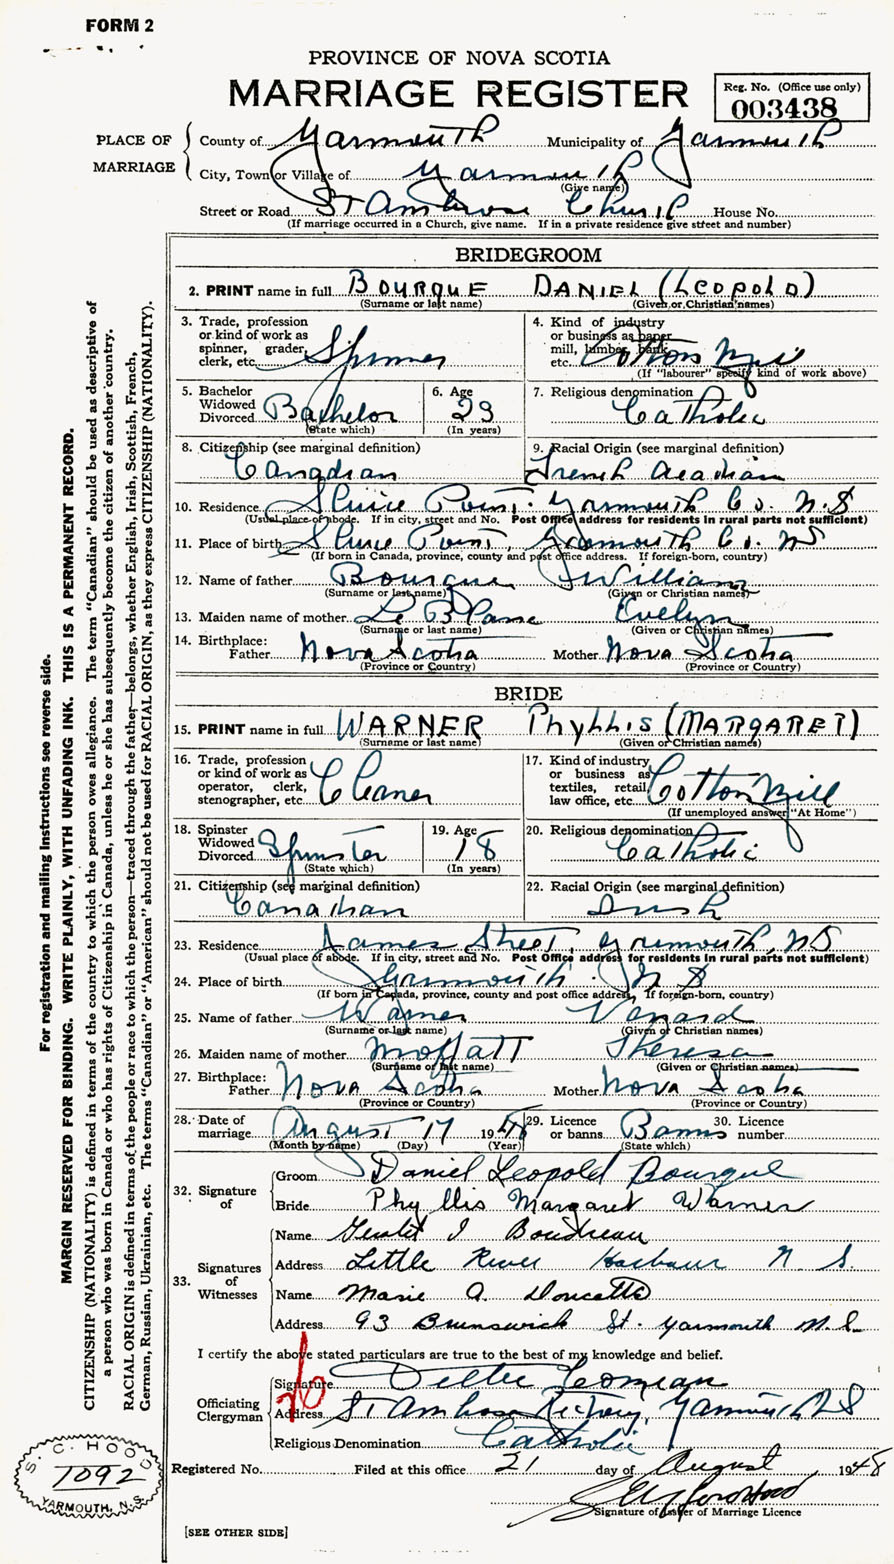 FORM 2
PROVINCE OF NOVA SCOTIA
MARRIAGE REGISTER
Reg. No. (Office use only)
003438
PLACE OF MARRIAGE
County of Yarmouth Municipality of Yarmouth
City, Town or Village of Yarmouth
(Give name)
Street or Road St Ambrose Church House No.
(If marriage occurred in a Church, give name. If in a private residence give street and number)
BRIDEGROOM
2. PRINT name in full BOURQUE DANIEL (LEOPOLD)
(Surname or last name) (Given or Christian names)
3. Trade, profession or kind of work as spinner, grader, clerk, etc. Spinner
4. Kind of industry or business as paper mill, lumber, bank, etc. Cotton Mill
(If "labourer" specify kind of work above)
5. Bachelor Widowed Divorced Bachelor
(State which)
6. Age 23
(In years)
7. Religious denomination Catholic
8. Citizenship (see marginal definition) Canadian
9. Racial Origin (see marginal definition) French Acadian
10. Residence Sluice Point. Yarmouth Co. N.S
(Usual place of abode. If in city, street and No. Post Office address for residents in rural parts not sufficient)
11. Place of birth Sluice Point, Yarmouth Co. NS
(If born in Canada, province, county and post office address. If foreign-born, country)
12. Name of father Bourque William
(Surname or last name) (Given or Christian names)
13. Maiden name of mother Le Blanc Evelyn
(Surname or last name) (Given or Christian names)
14. Birthplace: Father Nova Scotia Mother Nova Scotia
(Province or Country) (Province or Country)
BRIDE
15. PRINT name in full WARNER Phyllis (MARGARET)
(Surname or last name) (Given or Christian names)
16. Trade, profession or kind of work as operator, clerk, stenographer, etc. Cleaner
17. Kind of industry or business as textiles, retail, law office, etc. Cotton Mill
(If unemployed answer "At Home")
18. Spinster Widowed Divorced Spinster
(State which)
19. Age 18
(In years)
20. Religious denomination Catholic
21. Citizenship (see marginal definition) Canadian
22. Racial Origin (see marginal definition) Irish
23. Residence James Street, Yarmouth, NS
(Usual place of abode. If in city, street and No. Post Office address for residents in rural parts not sufficient)
24. Place of birth Yarmouth. N S
(If born in Canada, province, county and post office address, If foreign-born, country)
25. Name of father Warner
(Surname or last name) (Given or Christian names)
26. Maiden name of mother Moffatt Theresa
(Surname or last name) (Given or Christian names)
27. Birthplace: Father Nova Scotia Mother Nova Scotia
(Province or Country) (Province or Country)
28. Date of marriage August 17 1948
(Month by name) (Day) (Year)
29. Licence or banns Banns
(State which)
30. Licence number
32. Signature of
Groom Daniel Leopold Bourque
Bride Phyllis Margaret Warner
33. Signatures of Witnesses
Name Gerald J Boudreau
Address Little River Harbour N S.
Name Marie A. Doucette
Address 93 Brunswick St. Yarmouth N.S.
I certify the above stated particulars are true to the best of my knowledge and belief.
Officiating Clergyman
Signature Comeau
Address St Ambrose Rectory, Yarmouth NS
Religious Denomination Catholic
Registered No. Filed at this office 21 day of August, 1948
Signature of Issuer of Marriage Licence
[SEE OTHER SIDE]
S. C. HOOD
1092
YARMOUTH, N.S.
For registration and mailing instructions see reverse side.
MARGIN RESERVED FOR BINDING. WRITE PLAINLY, WITH UNFADING INK. THIS IS A PERMANENT RECORD.
CITIZENSHIP (NATIONALITY) is defined in terms of the country to which the person owes allegiance. The term "Canadian" should be used as descriptive of
a person who was born in Canada or who has rights of Citizenship in Canada, unless he or she has subsequently become the citizen of another country.
RACIAL ORIGIN is defined in terms of the people or race to which the person—traced through the father—belongs, whether English, Irish, Scottish, French,
German, Russian, Ukrainian, etc. The terms "Canadian" or "American" should not be used for RACIAL ORIGIN, as they express CITIZENSHIP (NATIONALITY).